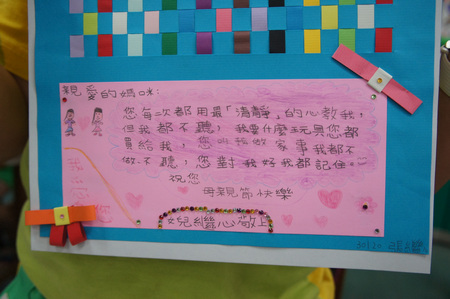 親愛的媽咪:
您每次都用最「清靜」的心教我,
但我都不聽, 我要什麼玩具您都
買給我, 您叫我做家事我都不
做、不聽, 您對我好我都記住。
祝您
母親節快樂
女兒繼心敬上